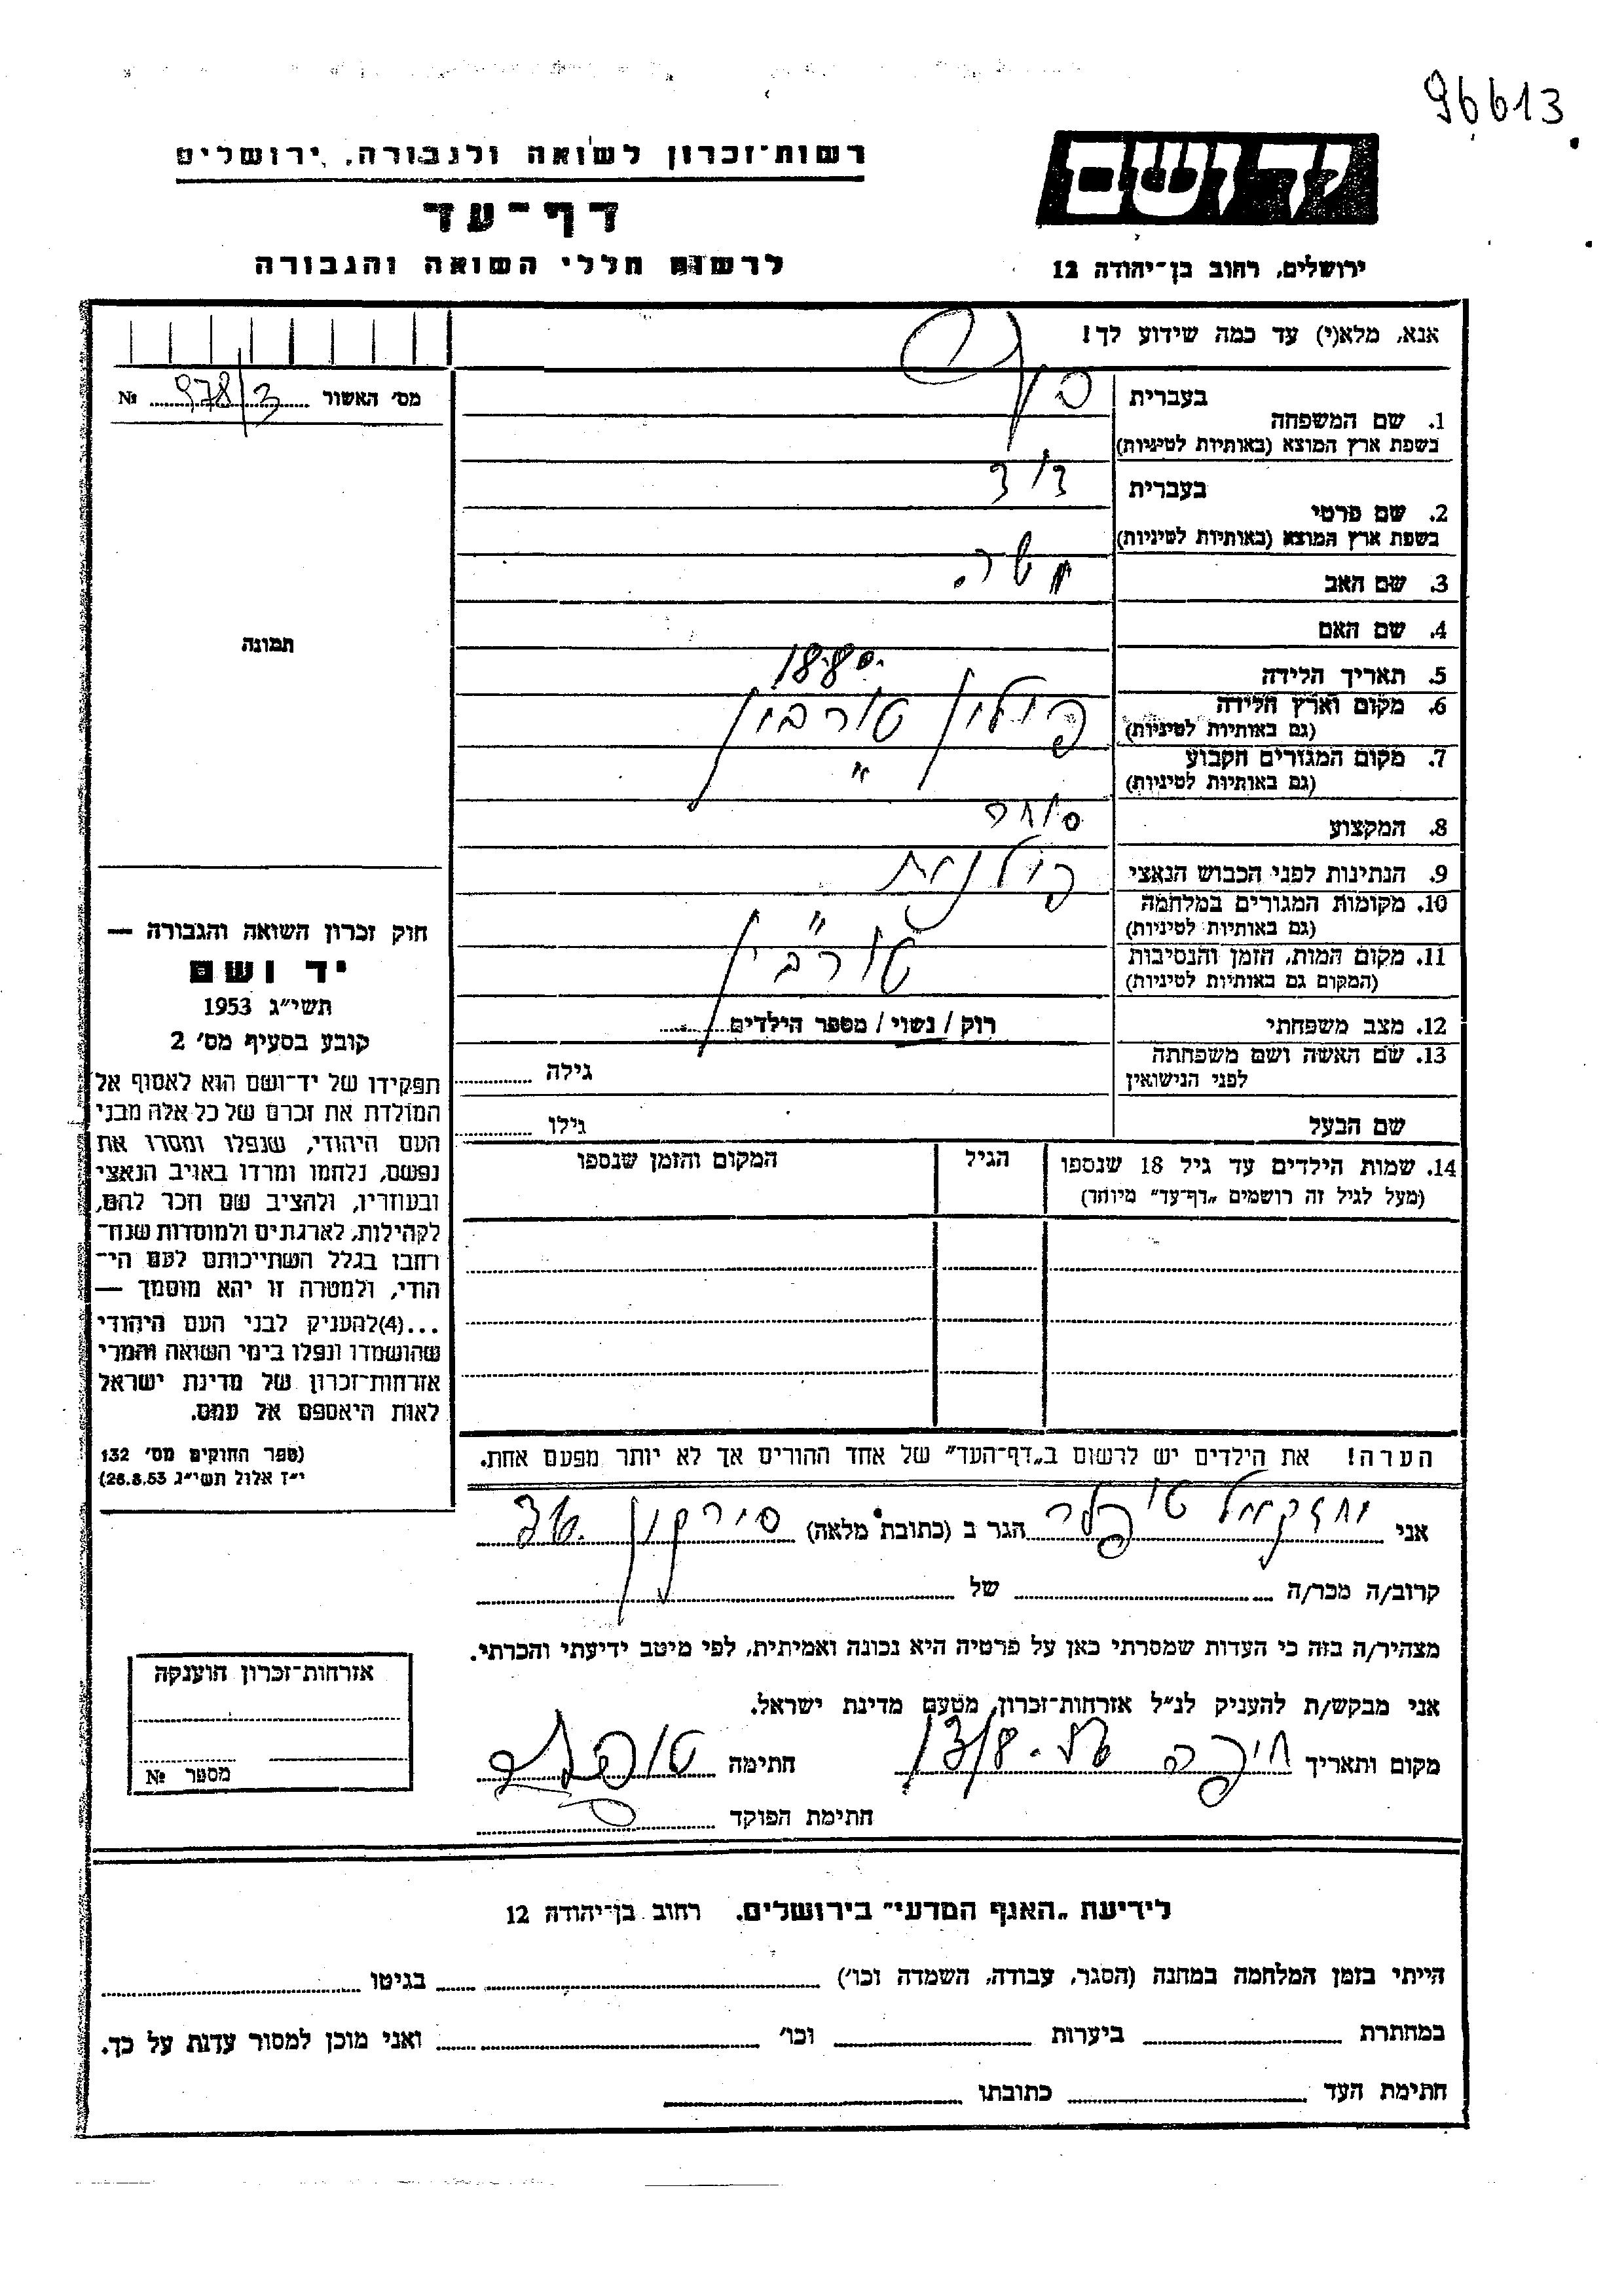 96613
רשות־זכרון לשואה ולגבורה, ירושלים
יד ושם
דף־עד
לרשום חללי השואה והגבורה
ירושלים, רחוב בן־יהודה 12
אנא, מלא(י) עד כמה שידוע לך!
מס׳ האשור 978/3 №
1. שם המשפחה
בעברית
בשפת ארץ המוצא (באותיות לטיניות)
2. שם פרטי
בעברית דוד
בשפת ארץ המוצא (באותיות לטיניות)
3. שם האב
4. שם האם
תמונה
5. תאריך הלידה 1880
6. מקום וארץ הלידה פולין טורבין
(גם באותיות לטיניות)
7. מקום המגורים הקבוע "
(גם באותיות לטיניות)
8. המקצוע סוחר
9. הנתינות לפני הכבוש הנאצי פולנית
10. מקומות המגורים במלחמה "
(גם באותיות לטיניות)
11. מקום המות, הזמן והנסיבות טורבין
(המקום גם באותיות לטיניות)
12. מצב משפחתי רוק / נשוי / מספר הילדים
13. שם האשה ושם משפחתה
לפני הנישואין
גילה
שם הבעל גילו
14. שמות הילדים עד גיל 18 שנספו הגיל המקום והזמן שנספו
(מעל לגיל זה רושמים „דף־עד" מיוחד)
חוק זכרון השואה והגבורה —
יד ושם
תשי״ג 1953
קובע בסעיף מס׳ 2
תפקידו של יד־ושם הוא לאסוף אל
המולדת את זכרם של כל אלה מבני
העם היהודי, שנפלו ומסרו את
נפשם, נלחמו ומרדו באויב הנאצי
ובעוזריו, ולהציב שם וזכר להם,
לקהילות, לארגונים ולמוסדות שנח־
רבו בגלל השתייכותם לעם הי־
הודי, ולמטרה זו יהא מוסמך —
...(4)להעניק לבני העם היהודי
שהושמדו ונפלו בימי השואה והמרי
אזרחות־זכרון של מדינת ישראל
לאות היאספם אל עמם.
(ספר החוקים מס׳ 132
י״ז אלול תשי״ג 28.8.53)
הערה! את הילדים יש לרשום ב„דף־העד" של אחד ההורים אך לא יותר מפעם אחת.
אני יחזקאל טופלר הגר ב (כתובת מלאה) סירקין
קרוב/ה מכר/ה של
מצהיר/ה בזה כי העדות שמסרתי כאן על פרטיה היא נכונה ואמיתית, לפי מיטב ידיעתי והכרתי.
אני מבקש/ת להעניק לנ״ל אזרחות־זכרון, מטעם מדינת ישראל.
מקום ותאריך חיפה חתימה
חתימת הפוקד
אזרחות־זכרון הוענקה
מספר №
לידיעת „האגף המדעי" בירושלים, רחוב בן־יהודה 12
הייתי בזמן המלחמה במחנה (הסגר, עבודה, השמדה וכו׳) בגיטו
במחתרת ביערות וכו׳ ואני מוכן למסור עדות על כך.
חתימת העד כתובתו